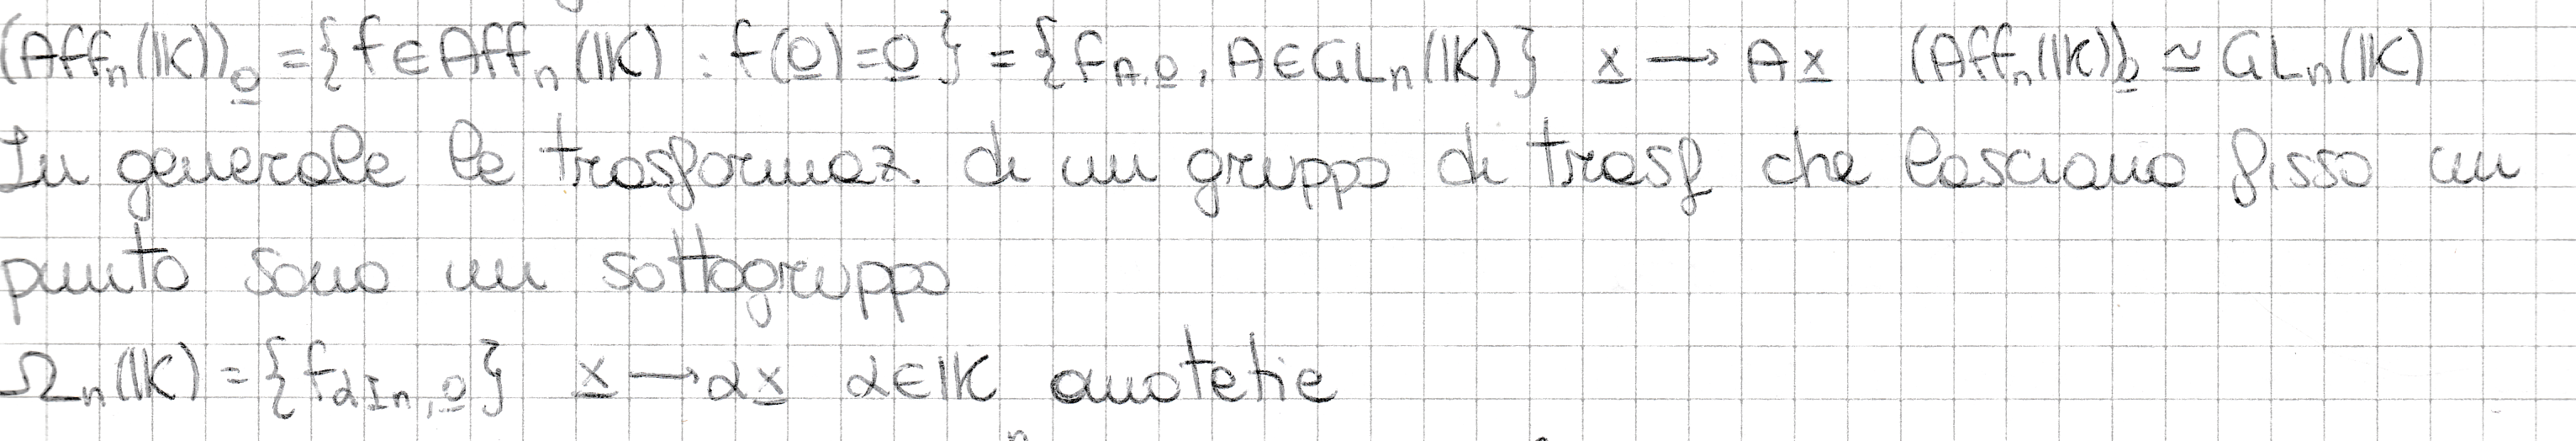 (Aff_n(𝕂))_0̲ = {f ∈ Aff_n(𝕂) : f(0̲) = 0̲} = {f_{A,0̲}, A ∈ GL_n(𝕂)} x̲ → A x̲ (Aff_n(𝕂))_0̲ ≃ GL_n(𝕂)
In generale le trasformaz. di un gruppo di trasf che lasciano fisso un
punto sono un sottogruppo
Ω_n(𝕂) = {f_{αI_n, 0̲}} x̲ → αx̲ α ∈ 𝕂 omotetie